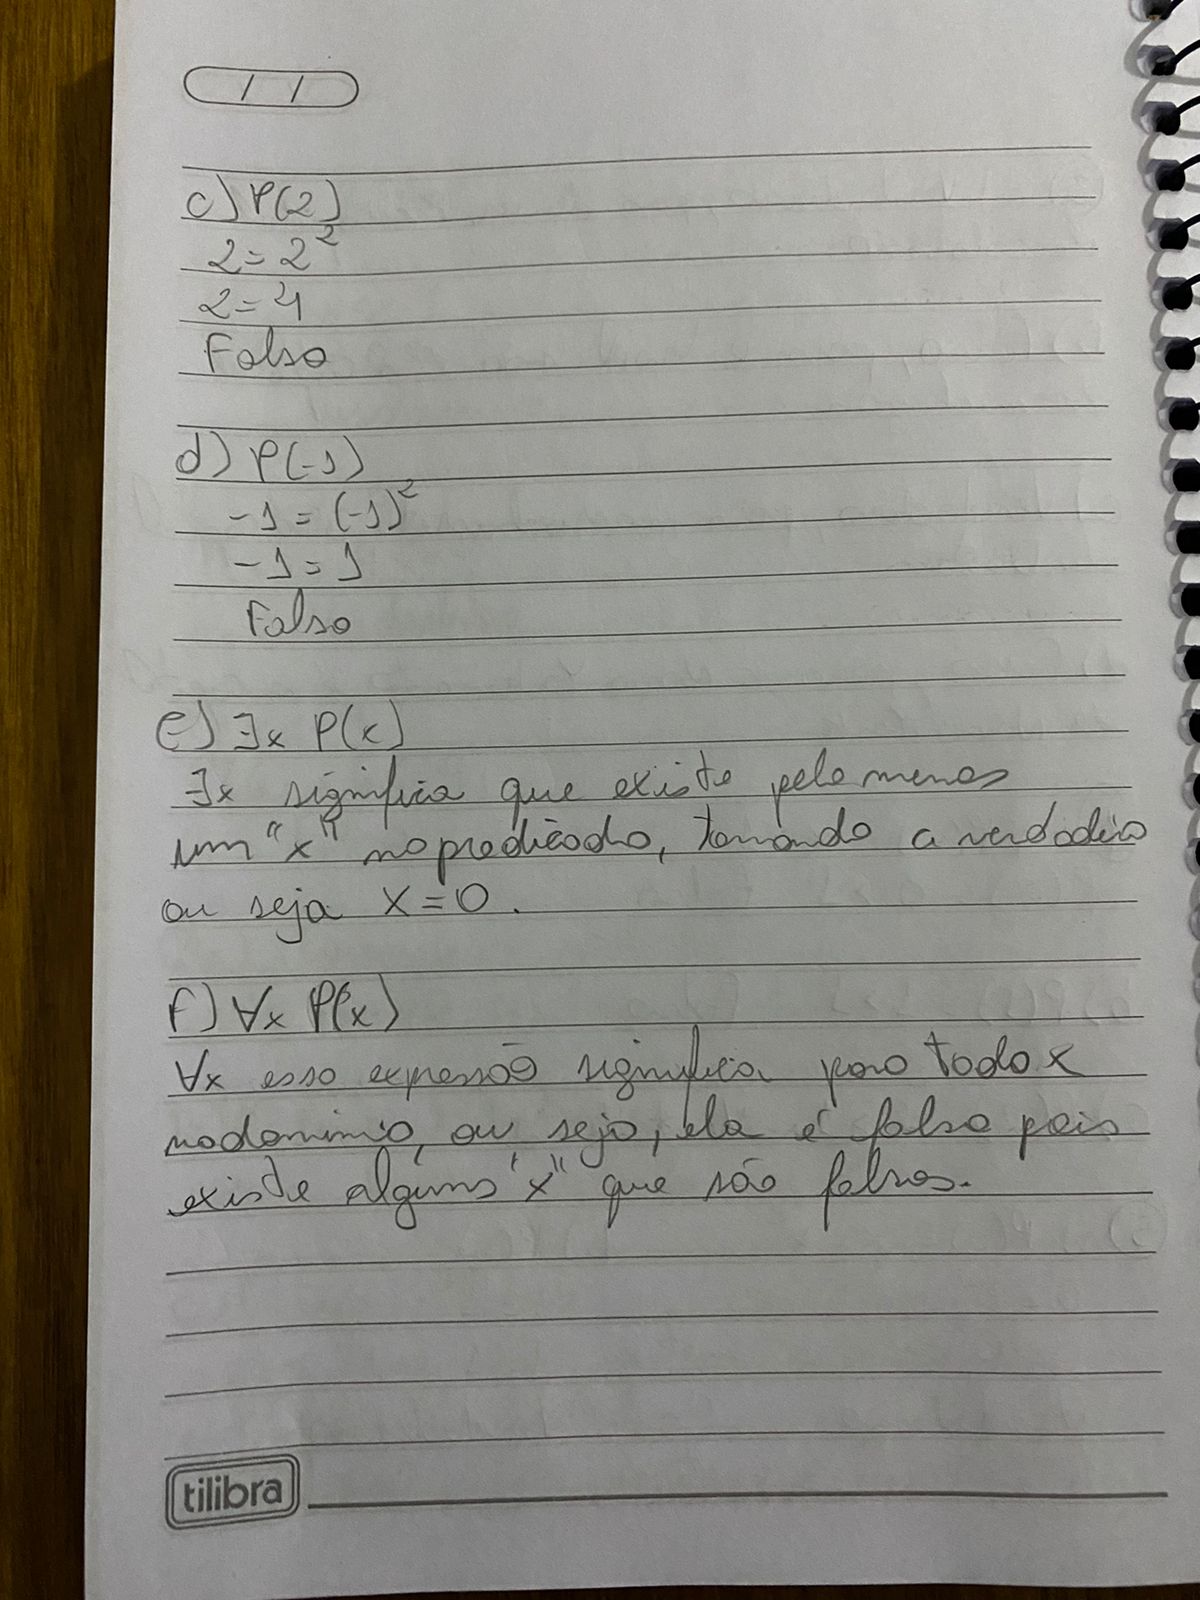 / /
c) P(2)
2 = 2²
2 = 4
Falso
d) P(-1)
-1 = (-1)²
-1 = 1
Falso
e) ∃x P(x)
∃x significa que existe pelo menos
um "x" no predicado, tornando a verdadeira
ou seja x = 0.
f) ∀x P(x)
∀x essa expressão significa para todo x
no domínio, ou seja, ela é falsa pois
existe alguns "x" que são falsos.
tilibra